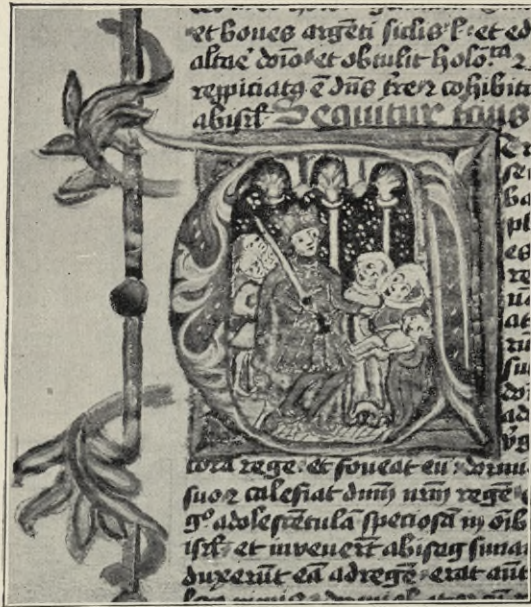 et boues argēti siclis l et ed
altare dn̄o et obtulit holo ta ꝛ
repiciatq ē dn̄s tr̄e ꝛ cohibita
ab isrl Sequitur tcius
se
ba
pl
es
re
at
su
do
ad
corā rege et foueat eū dormi
suo ꝛ calefiat dnm̄ nrm̄ regē
gº adolescētulā speciosā in oīb
isrl et inuenerūt abisag suna
duxerūt eā ad regē erat aūt